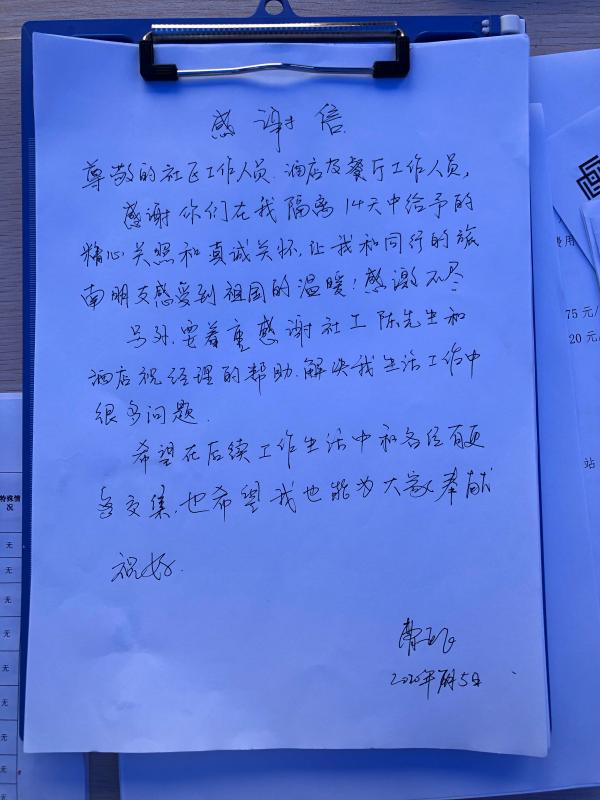 感谢信
尊敬的社区工作人员、酒店及餐厅工作人员,
感谢你们在我隔离14天中给予的
精心关照和真诚关怀,让我和同行的旅
南朋友感受到祖国的温暖!感激不尽
另外,要着重感谢社工陈先生和
酒店祝经理的帮助,解决我生活工作中
很多问题.
希望在后续工作生活中和各位有更
多交集,也希望我也能为大家奉献
祝好.
2020年 5日
费用
75元/
20元/
站
特殊情
况
无
无
无
无
无
无
无
无